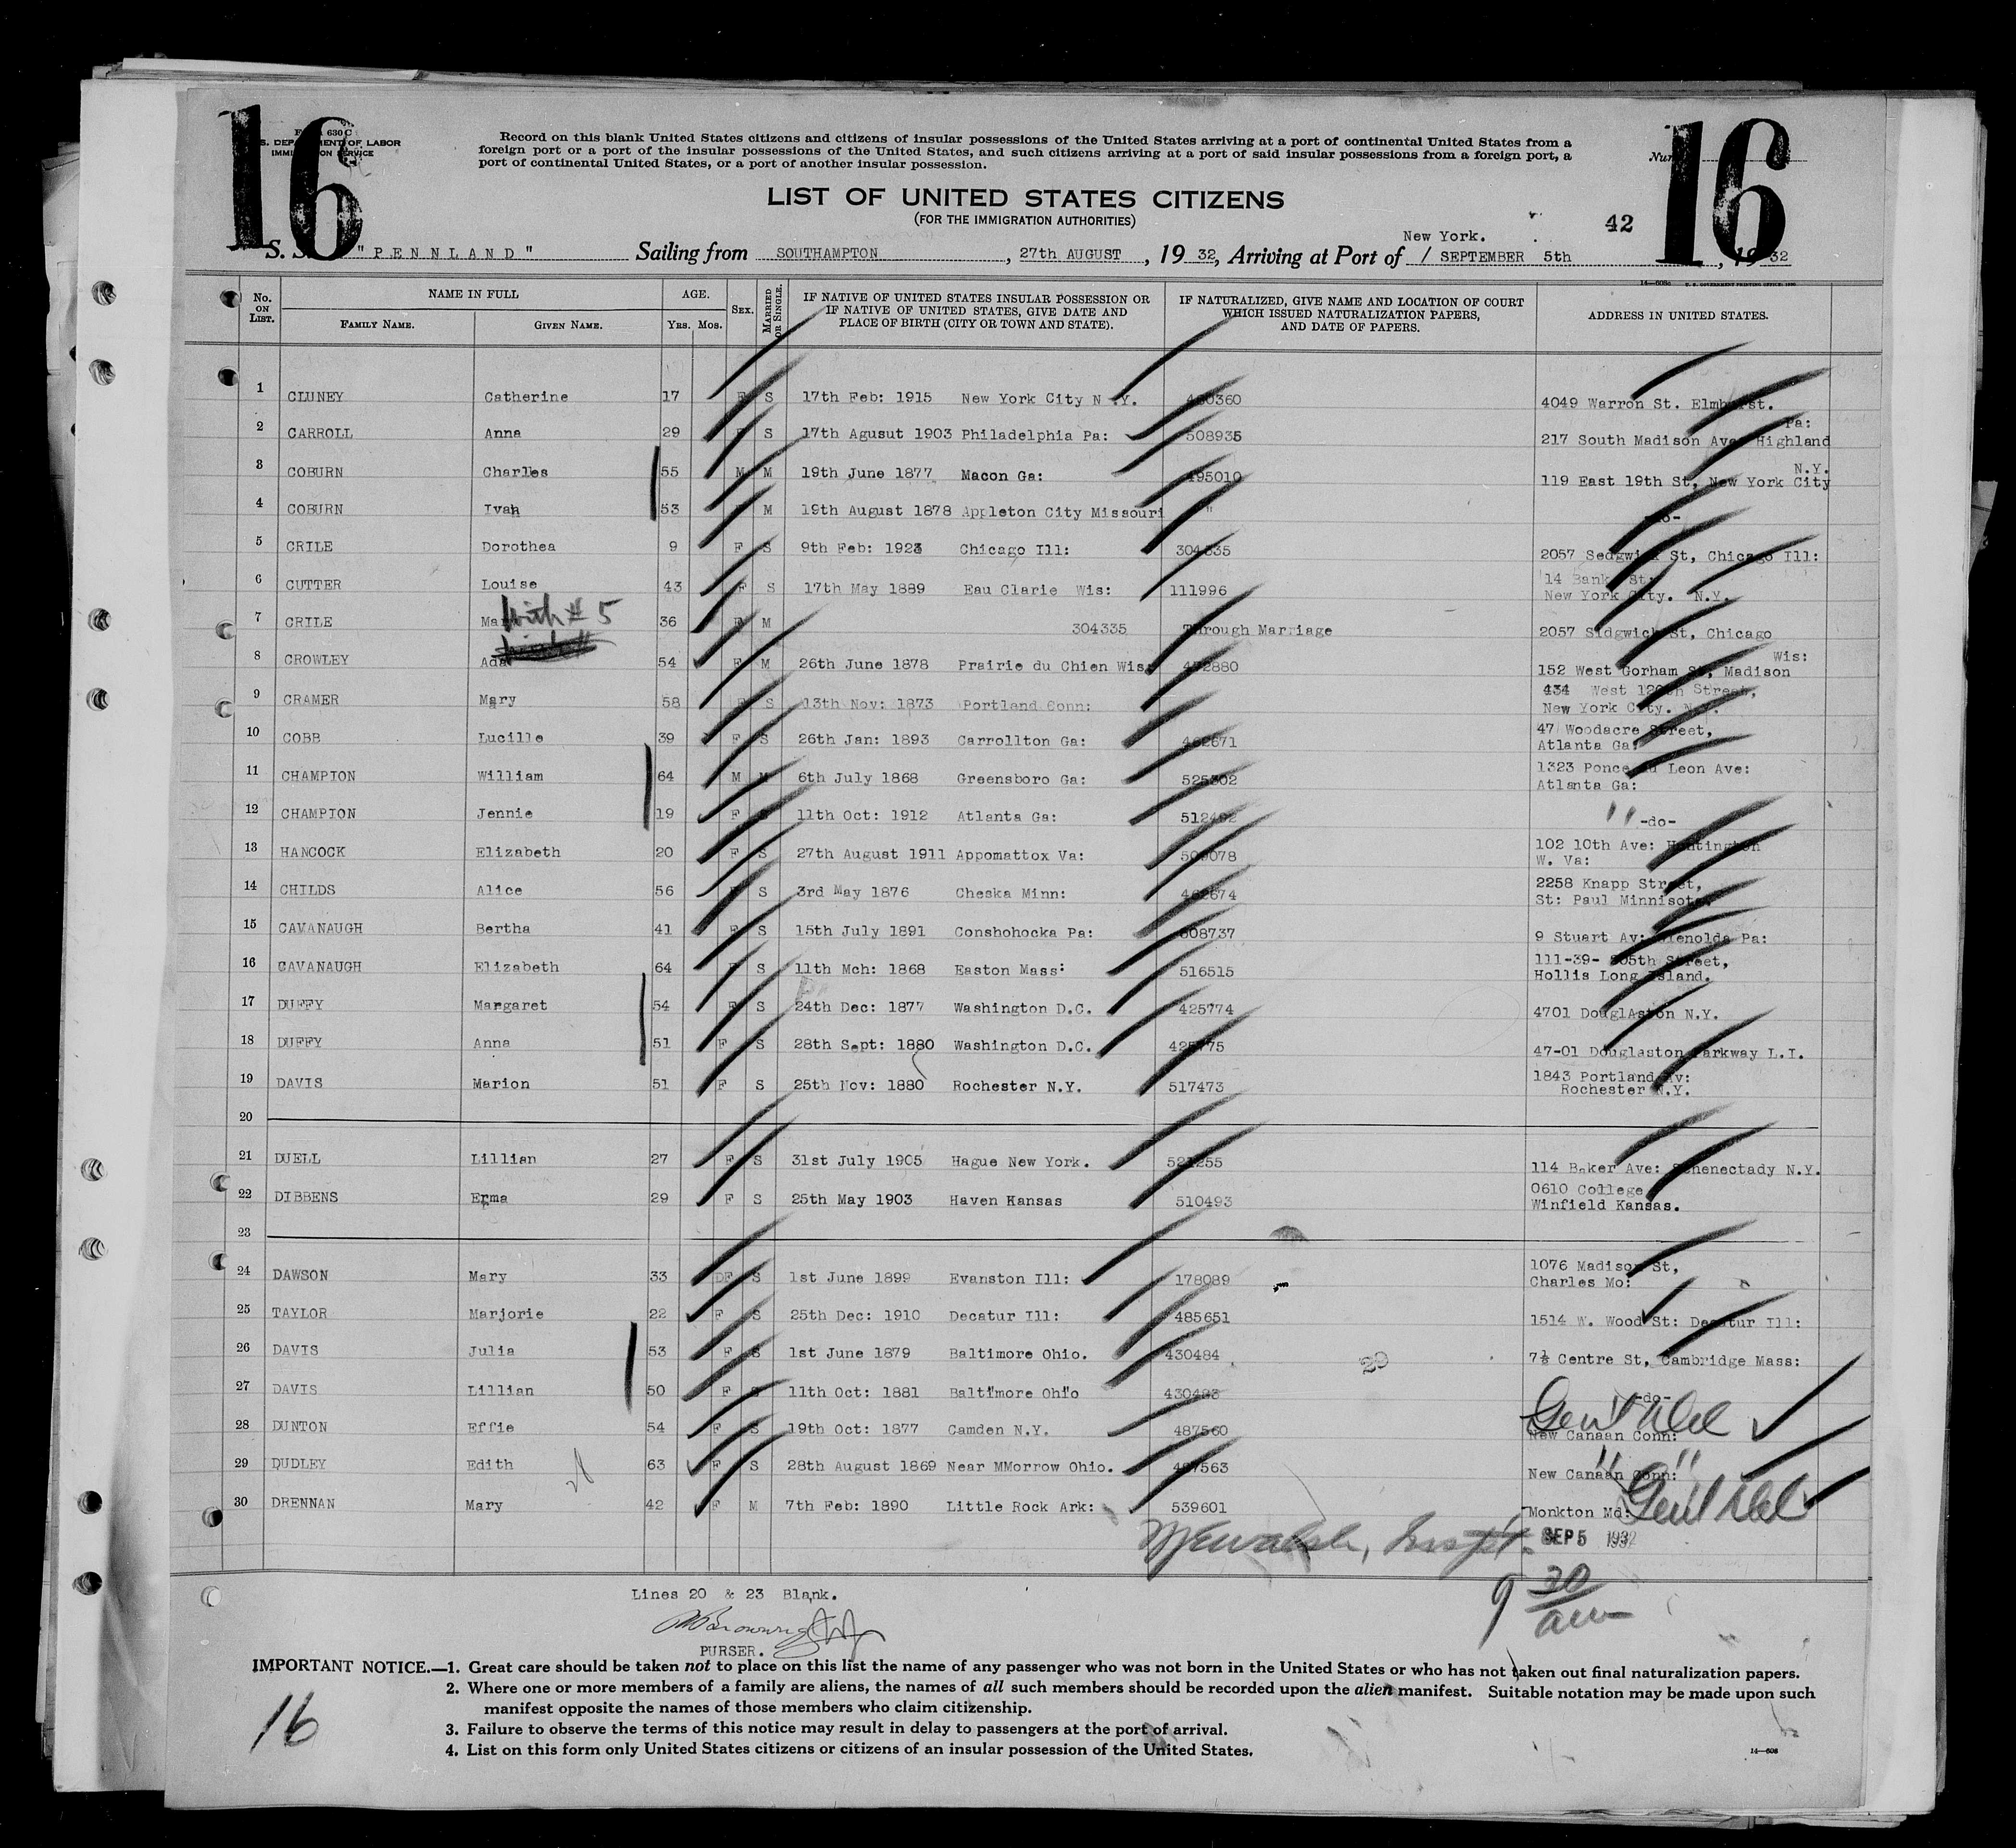 16
16
FORM 630 C
U. S. DEPARTMENT OF LABOR
IMMIGRATION SERVICE
Record on this blank United States citizens and citizens of insular possessions of the United States arriving at a port of continental United States from a
foreign port or a port of the insular possessions of the United States, and such citizens arriving at a port of said insular possessions from a foreign port, a
port of continental United States, or a port of another insular possession.
LIST OF UNITED STATES CITIZENS
(FOR THE IMMIGRATION AUTHORITIES)
42
New York.
S. S. "PENNLAND" Sailing from SOUTHAMPTON, 27th AUGUST, 19 32, Arriving at Port of / SEPTEMBER 5th, 19 32
No. ON LIST. NAME IN FULL FAMILY NAME. GIVEN NAME. AGE. YRS. MOS. SEX. MARRIED OR SINGLE. IF NATIVE OF UNITED STATES INSULAR POSSESSION OR IF NATIVE OF UNITED STATES, GIVE DATE AND PLACE OF BIRTH (CITY OR TOWN AND STATE). IF NATURALIZED, GIVE NAME AND LOCATION OF COURT WHICH ISSUED NATURALIZATION PAPERS, AND DATE OF PAPERS. ADDRESS IN UNITED STATES.
1 CLUNEY Catherine 17 F S 17th Feb: 1915 New York City N.Y. 4049 Warron St. Elmhurst.
2 CARROLL Anna 29 F S 17th Agusut 1903 Philadelphia Pa: 508935 217 South Madison Ave Highland Pa:
3 COBURN Charles 55 M M 19th June 1877 Macon Ga: 495010 119 East 19th St, New York City N.Y.
4 COBURN Ivah 53 F M 19th August 1878 Appleton City Missouri " -do-
5 CRILE Dorothea 9 F S 9th Feb: 1923 Chicago Ill: 304335 2057 Sedgwick St, Chicago Ill:
6 CUTTER Louise 43 F S 17th May 1889 Eau Clarie Wis: 111996 14 Bank St: New York City. N.Y.
7 CRILE with #5 36 F M 304335 Through Marriage 2057 Sidgwick St, Chicago
8 CROWLEY Ada 54 F M 26th June 1878 Prairie du Chien Wis: 472880 152 West Gorham St, Madison Wis:
9 CRAMER Mary 58 F S 13th Nov: 1873 Portland Conn: 434 West 120th Street, New York City. N.Y.
10 COBB Lucille 39 F S 26th Jan: 1893 Carrollton Ga: 462671 47 Woodacre Street, Atlanta Ga:
11 CHAMPION William 64 M M 6th July 1868 Greensboro Ga: 525302 1323 Ponce du Leon Ave: Atlanta Ga:
12 CHAMPION Jennie 19 F S 11th Oct: 1912 Atlanta Ga: " -do-
13 HANCOCK Elizabeth 20 F S 27th August 1911 Appomattox Va: 509078 102 10th Ave: Huntington W. Va:
14 CHILDS Alice 56 F S 3rd May 1876 Cheska Minn: 462674 2258 Knapp Street, St: Paul Minnisota.
15 CAVANAUGH Bertha 41 F S 15th July 1891 Conshohocka Pa: 508737 9 Stuart Av: Glenolde Pa:
16 CAVANAUGH Elizabeth 64 F S 11th Mch: 1868 Easton Mass: 516515 111-39- 205th Street, Hollis Long Island.
17 DUFFY Margaret 54 F S 24th Dec: 1877 Washington D.C. 425774 4701 DouglAston N.Y.
18 DUFFY Anna 51 F S 28th Sept: 1880 Washington D.C. 425775 47-01 Douglaston Parkway L.I.
19 DAVIS Marion 51 F S 25th Nov: 1880 Rochester N.Y. 517473 1843 Portland Av: Rochester N.Y.
20
21 DUELL Lillian 27 F S 31st July 1905 Hague New York. 521255 114 Baker Ave: Schenectady N.Y.
22 DIBBENS Erma 29 F S 25th May 1903 Haven Kansas 510493 0610 College Winfield Kansas.
23
24 DAWSON Mary 33 F S 1st June 1899 Evanston Ill: 178089 1076 Madison St, Charles Mo:
25 TAYLOR Marjorie 22 F S 25th Dec: 1910 Decatur Ill: 485651 1514 W. Wood St: Decatur Ill:
26 DAVIS Julia 53 F S 1st June 1879 Baltimore Ohio. 430484 7½ Centre St, Cambridge Mass:
27 DAVIS Lillian 50 F S 11th Oct: 1881 Baltimore Ohio 430483 -do-
28 DUNTON Effie 54 F S 19th Oct: 1877 Camden N.Y. 487560 New Canaan Conn:
29 DUDLEY Edith 63 F S 28th August 1869 Near MMorrow Ohio. 487563 New Canaan Conn: " "
30 DRENNAN Mary 42 F M 7th Feb: 1890 Little Rock Ark: 539601 Monkton Md:
SEP 5 1932
9 30 am
Lines 20 & 23 Blank.
PURSER.
IMPORTANT NOTICE.—1. Great care should be taken not to place on this list the name of any passenger who was not born in the United States or who has not taken out final naturalization papers.
2. Where one or more members of a family are aliens, the names of all such members should be recorded upon the alien manifest. Suitable notation may be made upon such
manifest opposite the names of those members who claim citizenship.
3. Failure to observe the terms of this notice may result in delay to passengers at the port of arrival.
4. List on this form only United States citizens or citizens of an insular possession of the United States.
16
14—608